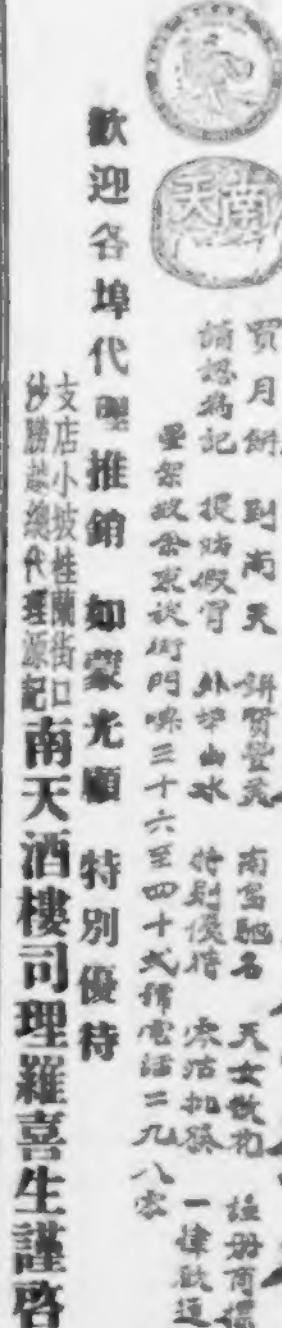 南天
買月餅 到南天 餅質豐美 南島馳名 天女散花 註册商標
請認為記 提防假冒 外埠山水 特別優待 零沽批發 一律歡迎
星架坡余東旋街門牌三十六至四十弍號電話二九八零
歡迎各埠代理推銷 如蒙光顧 特別優待
支店小坡桂蘭街口
紗朥越總代理源記
南天酒樓司理羅喜生謹啓